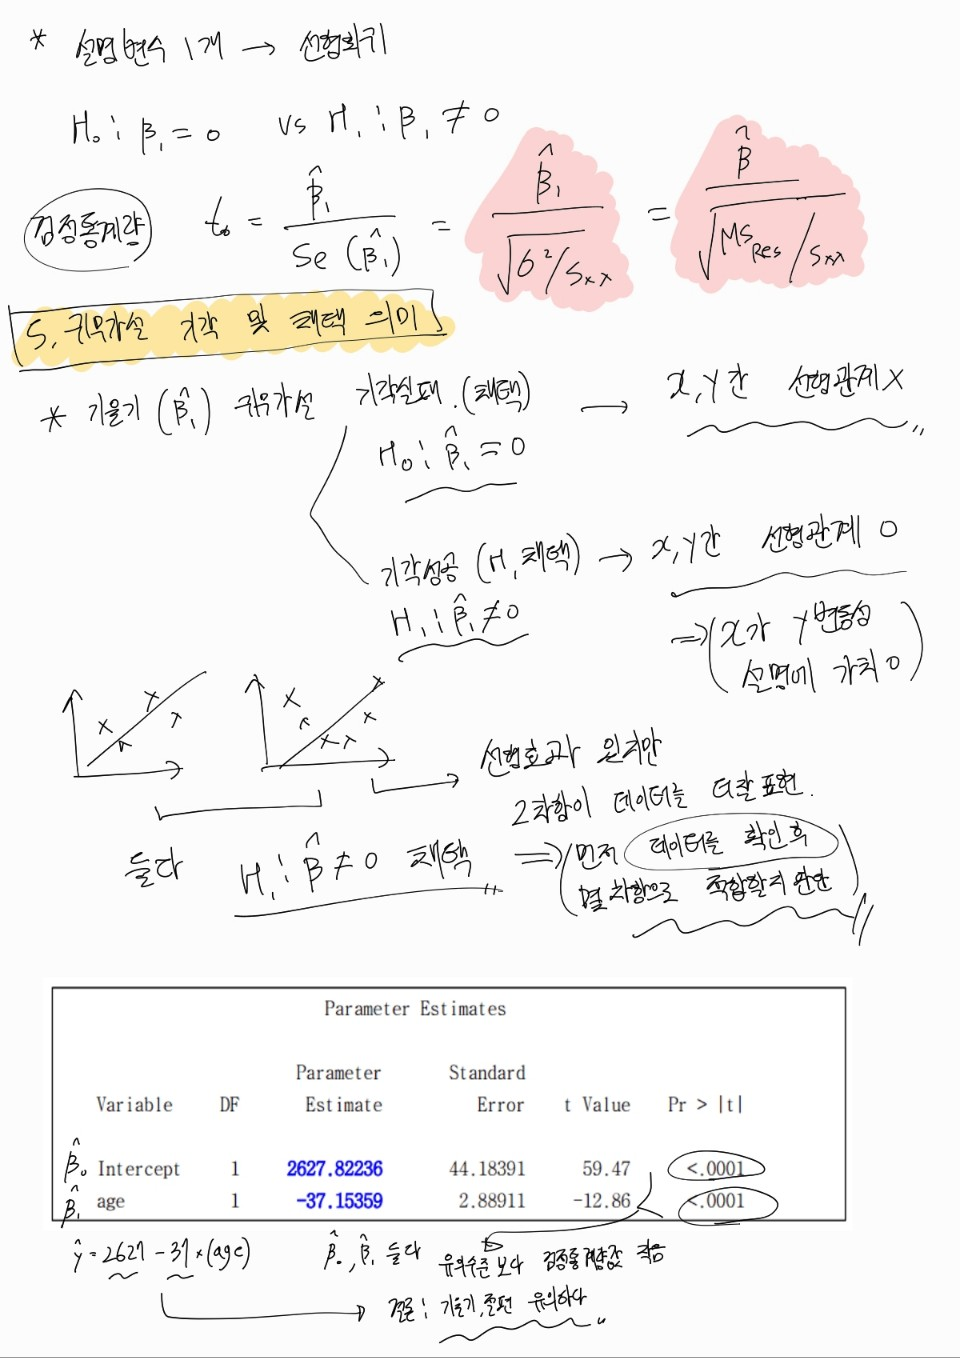 * 설명변수 1개 → 선형회귀
H₀ : β₁ = 0 vs H₁ : β₁ ≠ 0
검정통계량 t₀ = β̂₁ / Se(β̂₁) = β̂₁ / √(σ²/Sxx) = β̂ / √(MS_Res/Sxx)
5. 귀무가설 기각 및 채택 의미
* 기울기 (β̂₁) 귀무가설 기각실패.(채택) → x, y간 선형관계 X
H₀ : β̂₁ = 0
기각성공 (H₁채택) → x, y간 선형관계 O
H₁ : β̂₁ ≠ 0
⇒ (x가 y변동성
설명에 가치 O)
→ 선형효과 있지만
2차항이 데이터를 더 잘 표현.
둘다 H₁ : β̂ ≠ 0 채택 ⇒ (먼저 데이터를 확인 후
몇 차항으로 적합할지 판단)
Parameter Estimates
Parameter Standard
Variable DF Estimate Error t Value Pr > |t|
β̂₀ Intercept 1 2627.82236 44.18391 59.47 <.0001
β̂₁ age 1 -37.15359 2.88911 -12.86 <.0001
ŷ = 2627 - 37 × (age) β̂₀, β̂₁ 둘다 유의수준 보다 검정통계량값 작음
→ 결론 : 기울기, 절편 유의하다